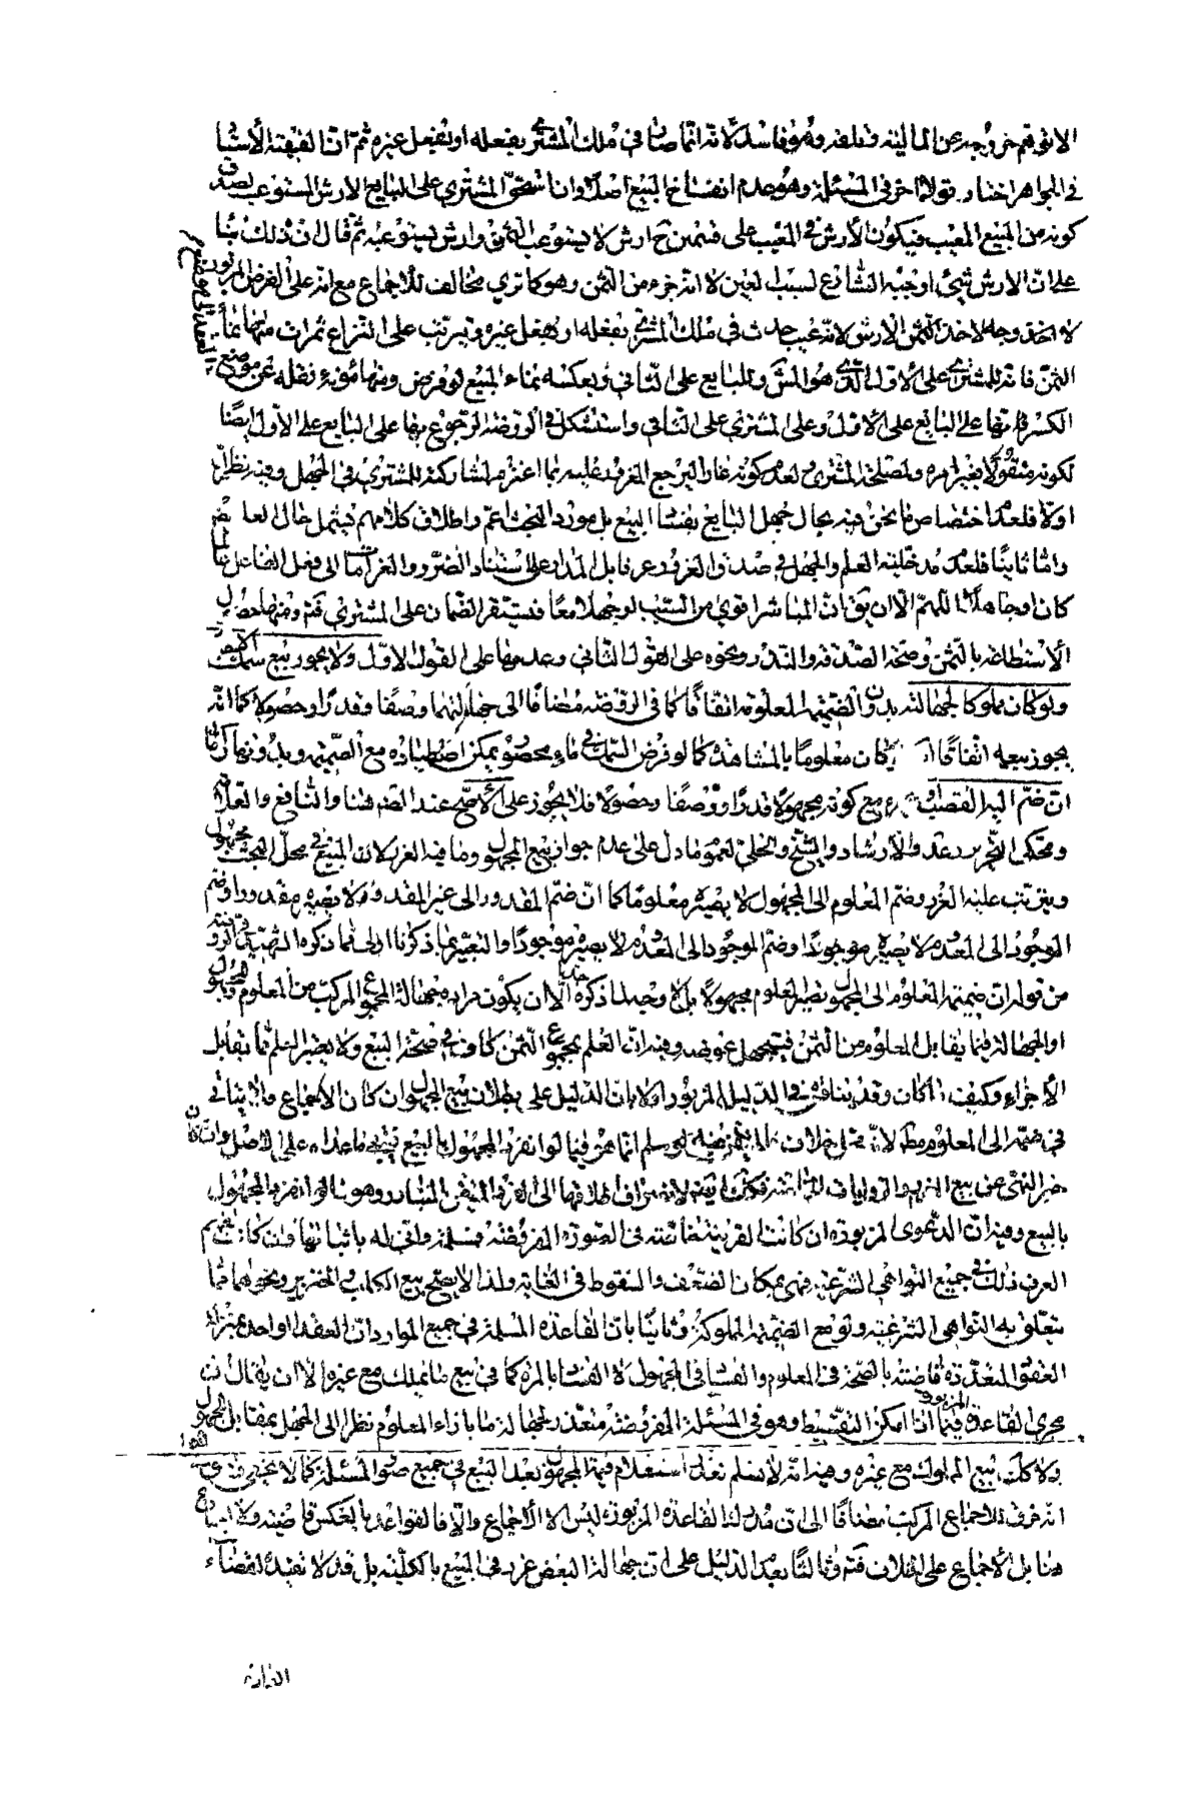 الا توقم خروجه عن المالية وتلفه وهو فاسد لانه انما صار في ملك المشتري بفعله او بفعل غيره ثم ان الفقيه الاستاد
في الجواهر اختار قولا اخر في المسئلة وهو عدم انفساخ البيع اصلا وان استحق المشتري على البايع الارش المستوعب لصدق
كونه من المبيع المعيب فيكون الارش في المعيب على قسمين ح ارش لا يستوعب الثمن وارش يستوعبه ثم قال ان ذلك بناء
على ان الارش شيء اوجبه الشارع لسبب العين لا انه جزء من الثمن وهو كما تري مخالف للاجماع مع انه على الفرض المزبور
لا وجه لاخذ الثمن الارش لانه عيب حدث في ملك المشتري بفعله او بفعل غيره ويترتب على النزاع ثمرات منها نماء
الثمن فانه للمشتري على الاول الذي هو المش وللبايع على الثاني وبعكسه نماء المبيع لو فرض ومنها مؤنة نقله عن موضع
الكسر فانها على البايع على الاول وعلى المشتري على الثاني واستشكل في الروضة الرجوع بها على البايع على الاول ايضا
لكونه منقولا بغير امره ولمصلحة المشتري وبعدم كونه غارا ليرجع المغرور عليه بما اغترم لمشاركته للمشتري في الجهل وفيه نظر اما
اولا فلعدم اختصاص ما نحن فيه بحال جهل البايع بفساد البيع بل مورد البحث اعم واطلاق كلامهم يشمل حال العلم ايض
واما ثانيا فلعدم مدخلية العلم والجهل في صدق الغرور عرفا بل المدار على استناد الضرر والغرامة الى فعل الفاعل عالما
كان او جاهلا اللهم الا ان يق ان المباشر اقوي من السبب لو جهلا معا فيستقر الضمان على المشتري فتم ومنها حصول
الاستطاعة بالثمن وصحة الصدقة والنذر ونحوه على القول الثاني وعدمها على القول الاول ولا يجوز بيع سمك الاجام
ولو كان مملوكا لجهالته بدون الضميمة المعلومة اتفاقا كما في الروضة مضافا الى جهالتها وصفا وقدرا وحصولا كما انه
يجوز بيعه اتفاقا اذا كان معلوما بالمشاهدة كما لو فرض السمك في ماء محصور يمكن اصطياده مع الضميمة وبدونها واما
ان ضم اليه القصب مع كونه مجهولا قدرا ووصفا وحصولا فلا يجوز على الاصح عند المصنف هنا والنافع والعلامة
ومحكي التحرير والارشاد والشيخ والحلي لعموم ما دل على عدم جواز بيع المجهول وما فيه الغرر لان المبيع في محل البحث مجهول
ويترتب عليه الغرر وضم المعلوم الى المجهول لا يصيره معلوما كما ان ضم المقدور الى غير المقدور لا يصيره مقدورا وضم
الموجود الى المعدوم لا يصيره موجودا وضم الموجود الى المعدوم لا يصيره موجودا والتعبير بما ذكرنا اولى مما ذكره الشهيد في الروضة
من قوله ان ضميمة المعلوم الى المجهول تصير المعلوم مجهولا بل لا وجه لما ذكره الا ان يكون مراده جهالة المجموع المركب من المعلوم والمجهول
او الجهالة فيما يقابل المعلوم من الثمن فيتجهل عوضه وفيه ان العلم بمجموع الثمن كاف في صحة البيع ولا يعتبر العلم بما يقابل
الاجزاء وكيف كان وقد يناقش في الدليل المزبور اولا بان الدليل على بطلان بيع المجهول ان كان الاجماع فلا يتاتى
في ضمه الى المعلوم لانه محل خلاف لو سلم انما هو فيما لو انفرد المجهول بالبيع فيبقى ما عداه على الاصل وان كان
خبر النهي عن بيع الغرر والروايات المتفرقة فكذلك ايضا لانصراف اطلاقها الى الفرد المتيقن المتبادر وهو ما لو انفرد المجهول
بالبيع وفيه ان الدعوى المزبورة ان كانت لقرينة خاصة في الصورة المفروضة فمسلمة وانى له باثباتها وان كان لفهم
العرف ذلك في جميع النواهي الشرعية فهي بمكان الضعف والسقوط في الغاية ولذا لا يصح بيع الكلب والخنزير ونحوهما مما
يتعلق به النواهي الشرعية ولو مع الضميمة المملوكة وثانيا بان القاعدة المسلمة في جميع الموارد ان العقد الواحد بمنزلة
العقود المتعددة قاضية بالصحة في المعلوم والفساد في المجهول لا الفساد بالمرة كما في بيع ما يملك مع غيره الا ان يقال ان
مجرى القاعدة المزبورة فيما اذا امكن التقسيط وهو في المسئلة المفروضة متعذر لجهالة ما بازاء المعلوم نظرا الى الجهل بمقابل المجهول
ولا كك بيع المملوك مع غيره وفيه انه لا يسلم تعذر استعلام قيمة المجهول بعد البيع في جميع صور المسئلة كما لا يخفى
انه خرق للاجماع المركب مضافا الى ان مدرك القاعدة المزبورة ليس الا الاجماع والا فالقواعد بالعكس قاضية ولا اجماع
هنا بل الاجماع على الخلاف فتم وثالثا بعدم الدليل على ان جهالة البعض غرر في المبيع بالكلية بل قد لا تفيده لقضاء
العادة